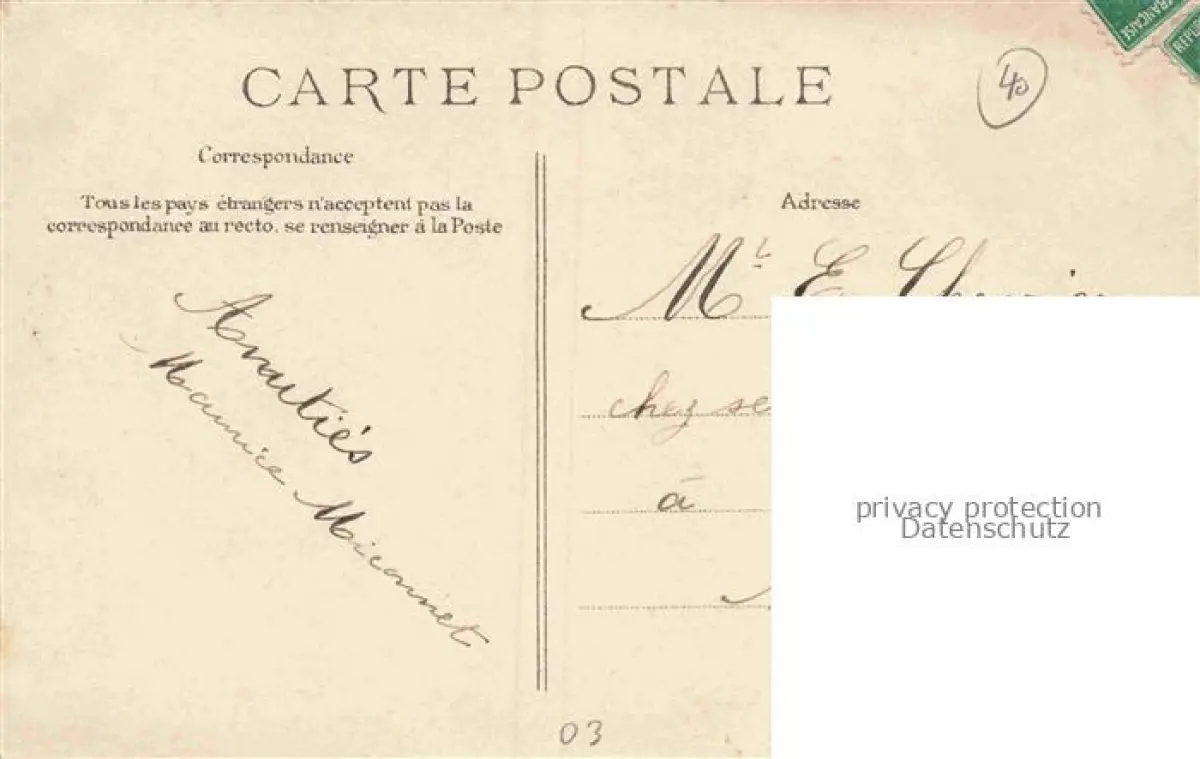 CARTE POSTALE
40
FRANÇAISE
Correspondance
Tous les pays étrangers n'acceptent pas la
correspondance au recto, se renseigner à la Poste
Adresse
Amitiés
Maurice Miconnet
Mr E.
chez se
à
privacy protection
Datenschutz
03